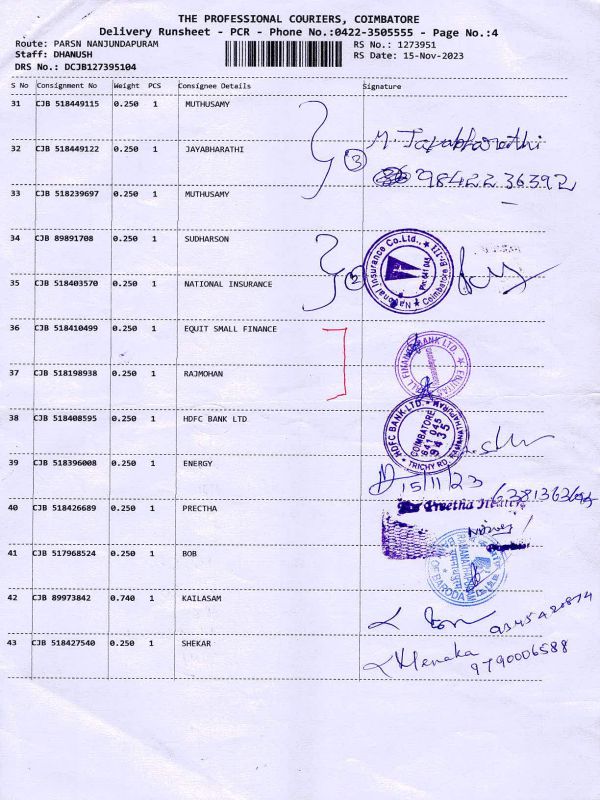 THE PROFESSIONAL COURIERS, COIMBATORE
Delivery Runsheet - PCR - Phone No.:0422-3505555 - Page No.:4
Route: PARSN NANJUNDAPURAM RS No.: 1273951
Staff: DHANUSH RS Date: 15-Nov-2023
DRS No.: DCJB127395104
S No Consignment No Weight PCS Consignee Details Signature
31 CJB 518449115 0.250 1 MUTHUSAMY
M. Jayabharathi
32 CJB 518449122 0.250 1 JAYABHARATHI
3
9842236392
33 CJB 518239697 0.250 1 MUTHUSAMY
34 CJB 89891708 0.250 1 SUDHARSON
National Insurance Co.Ltd., Coimbatore
2
35 CJB 518403570 0.250 1 NATIONAL INSURANCE
36 CJB 518410499 0.250 1 EQUIT SMALL FINANCE
FINANCE BANK LTD.
37 CJB 518198938 0.250 1 RAJMOHAN
38 CJB 518408595 0.250 1 HDFC BANK LTD
HDFC BANK LTD. RAMANATHAPURAM TRICHY RD
COIMBATORE
641 045
9435
39 CJB 518396008 0.250 1 ENERGY
15/11/23
40 CJB 518426689 0.250 1 PREETHA
For Preetha
41 CJB 517968524 0.250 1 BOB
OF BARODA
42 CJB 89973842 0.740 1 KAILASAM
43 CJB 518427540 0.250 1 SHEKAR
Menaka
9790006588